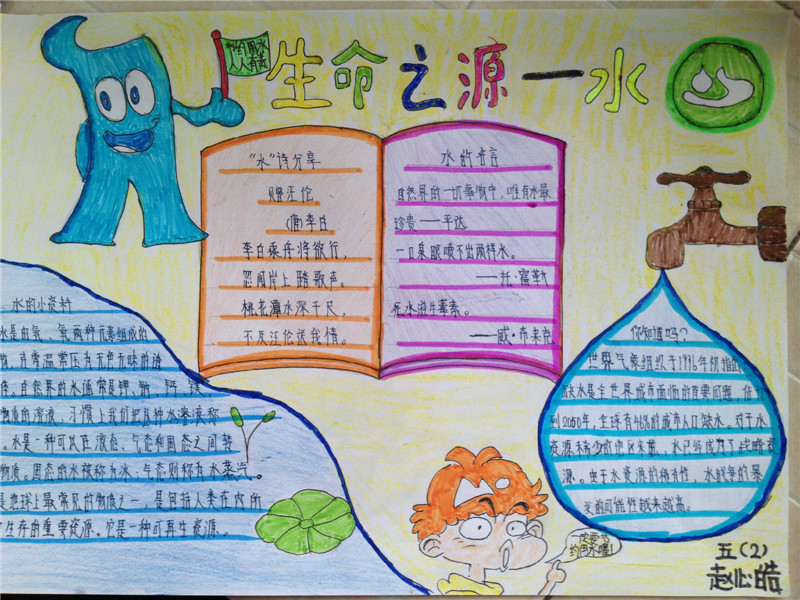 节约用水
人人有责
生命之源一水
"水"诗分享
赠汪伦
(唐)李白
李白乘舟将欲行,
忽闻岸上踏歌声。
桃花潭水深千尺,
不及汪伦送我情。
水的名言
自然界的一切事物中,唯有水最
珍贵——平达
一口泉眼喷不出两样水。
——托·富勒
死水滋生毒素。
——威·布莱克
水的小资料
水是由氢、氧两种元素组成的
物,在常温常压为无色无味的透
自然界的水通常是钾、钠、钙、镁
物质的溶液,习惯上我们把各种水溶液称
。水是一种可以在液态、气态和固态之间转
物质。固态的水被称为冰;气态则称为水蒸气。
是地球上最常见的物质之一,是包括人类在内所
生存的重要资源。它是一种可再生资源。
你知道吗?
世界气象组织于1996年初指出
缺水是全世界城市面临的首要问题,估计
到2050年,全球有46%的城市人口缺水。对于水
资源稀少的地区来说,水已经成为了
源。由于水资源的稀有性,水战争的暴
发的可能性越来越高。
一定要节
约用水喔!
五(2)
赵心皓